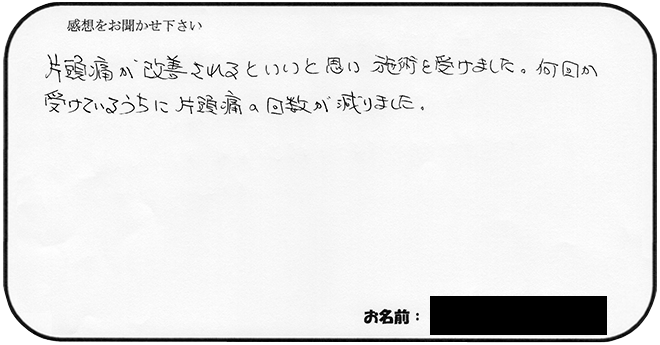 感想をお聞かせ下さい
片頭痛が改善されるといいと思い 施術を受けました。何回か
受けているうちに片頭痛の回数が減りました。
お名前：